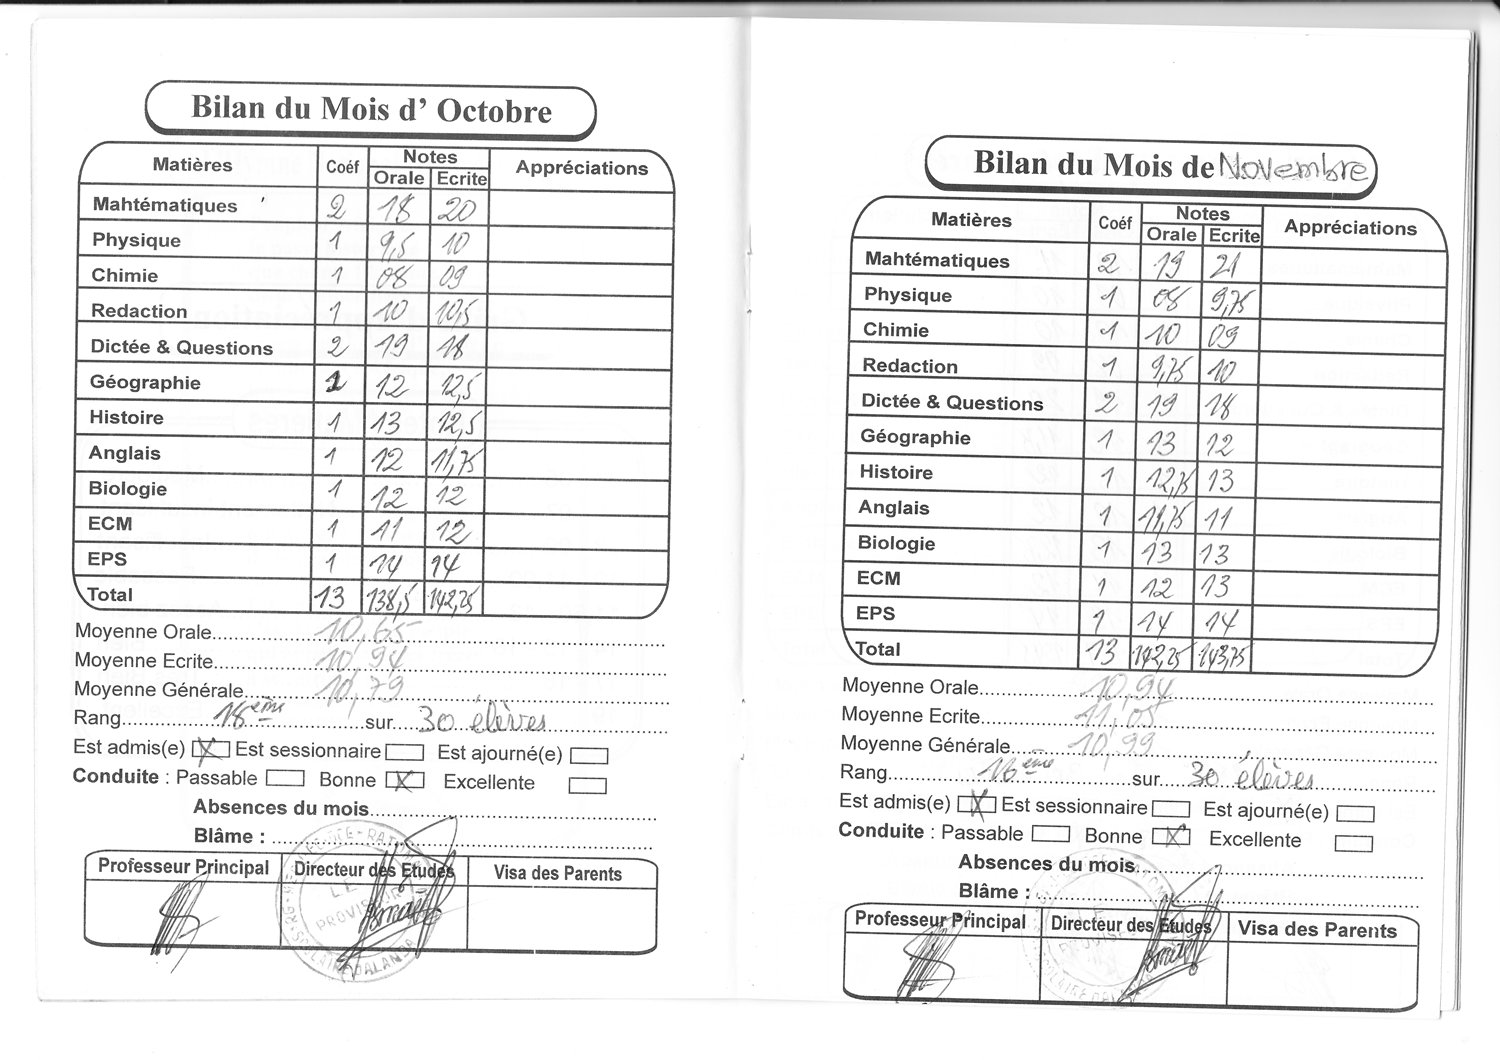 Bilan du Mois d' Octobre
Matières Coéf Notes Appréciations
Orale Ecrite
Mahtématiques 2 18 20
Physique 1 9,5 10
Chimie 1 08 09
Redaction 1 10 10,5
Dictée & Questions 2 19 18
Géographie 1 12 12,5
Histoire 1 13 12,5
Anglais 1 12 11,75
Biologie 1 12 12
ECM 1 11 12
EPS 1 14 14
Total 13 138,5 142,25
Moyenne Orale 10,65
Moyenne Ecrite 10,94
Moyenne Générale 10,79
Rang 18ème sur 30 élèves
Est admis(e) X Est sessionnaire Est ajourné(e)
Conduite : Passable Bonne X Excellente
Absences du mois
Blâme :
Professeur Principal Directeur des Etudes Visa des Parents
LE PROVISEUR
Bilan du Mois de Novembre
Matières Coéf Notes Appréciations
Orale Ecrite
Mahtématiques 2 19 21
Physique 1 08 9,75
Chimie 1 10 09
Redaction 1 9,75 10
Dictée & Questions 2 19 18
Géographie 1 13 12
Histoire 1 12,75 13
Anglais 1 11,75 11
Biologie 1 13 13
ECM 1 12 13
EPS 1 14 14
Total 13 142,25 143,75
Moyenne Orale 10,94
Moyenne Ecrite 11,05
Moyenne Générale 10,99
Rang 16ème sur 30 élèves
Est admis(e) X Est sessionnaire Est ajourné(e)
Conduite : Passable Bonne X Excellente
Absences du mois
Blâme :
Professeur Principal Directeur des Etudes Visa des Parents